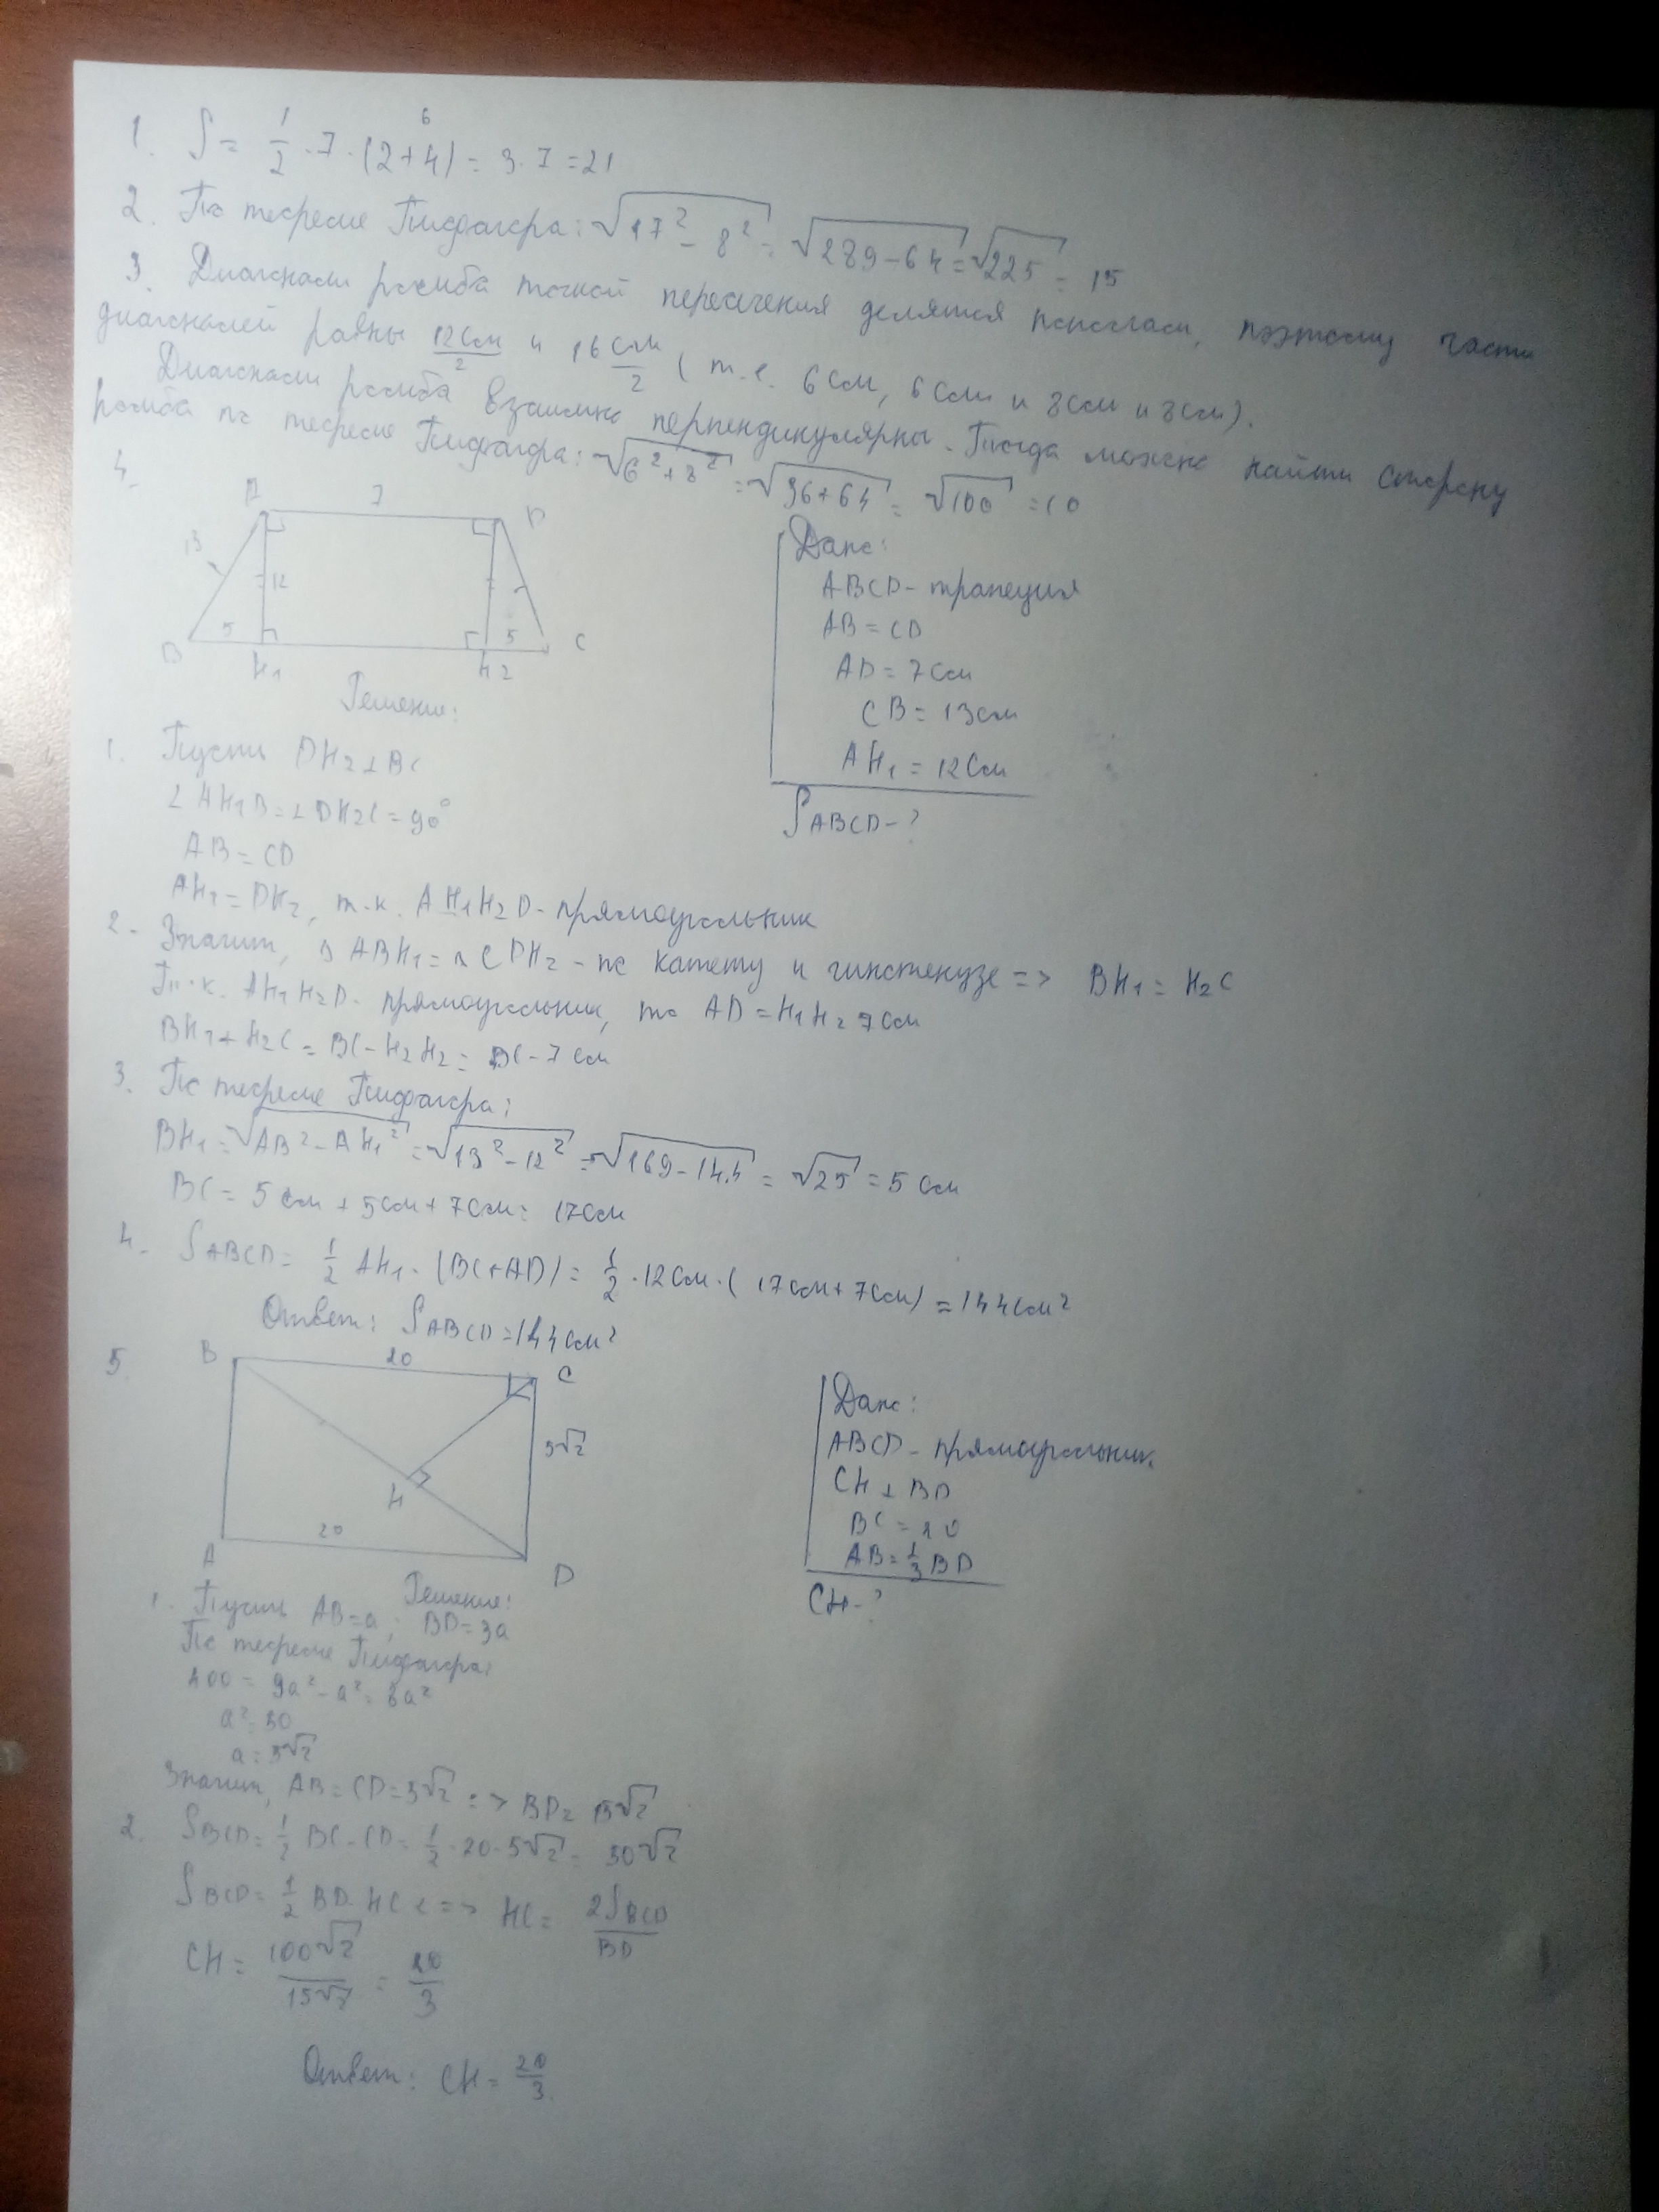 1. S = 1/2 · 7 · (2+4) = 3 · 7 = 21
6
2. По теореме Пифагора: √(17² - 8²) = √(289-64) = √225 = 15
3. Диагонали ромба точкой пересечения делятся пополам, поэтому части
диагоналей равны 12см/2 и 16см/2 (т.е. 6см, 6см и 8см и 8см).
Диагонали ромба взаимно перпендикулярны. Тогда можно найти сторону
ромба по теореме Пифагора: √(6²+8²) = √(36+64) = √100 = 10
4.
A 7 D
13 12
B 5 H1 H2 5 C
Дано:
ABCD - трапеция
AB = CD
AD = 7см
CB = 13см
AH₁ = 12см
S ABCD - ?
Решение:
1. Пусть DH₂ ⊥ BC
∠AH₁B = ∠DH₂C = 90°
AB = CD
AH₁ = DH₂, т.к. AH₁H₂D - прямоугольник
2. Значит, △ABH₁ = △CDH₂ - по катету и гипотенузе => BH₁ = H₂C
Т.к. AH₁H₂D - прямоугольник, то AD = H₁H₂ 7см
BH₁ + H₂C = BC - H₂H₂ = BC - 7см
3. По теореме Пифагора:
BH₁ = √(AB² - AH₁²) = √(13² - 12²) = √(169-144) = √25 = 5см
BC = 5см + 5см + 7см = 17см
4. S ABCD = 1/2 AH₁ · (BC+AD) = 1/2 · 12см · (17см + 7см) = 144см²
Ответ: S ABCD = 144см²
5.
B 20 C
5√2
H
A 20 D
Дано:
ABCD - прямоугольник
CH ⊥ BD
BC = 20
AB = 1/3 BD
CH - ?
Решение:
1. Пусть AB = a; BD = 3a
По теореме Пифагора:
400 = 9a² - a² = 8a²
a² = 50
a = 5√2
Значит, AB = CD = 5√2 => BD = 15√2
2. S BCD = 1/2 BC · CD = 1/2 · 20 · 5√2 = 50√2
S BCD = 1/2 BD · HC <=> HC = 2S BCD / BD
CH = 100√2 / 15√2 = 20/3
Ответ: CH = 20/3.